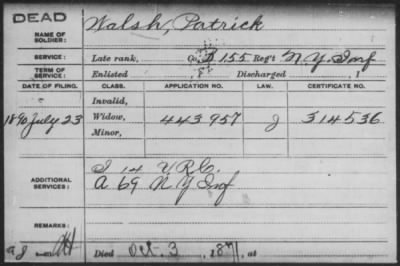 DEAD
NAME OF SOLDIER: Walsh, Patrick
SERVICE: Late rank, Co. 155 Reg't N.Y. Inf
TERM OF SERVICE: Enlisted , 18 Discharged , 1
DATE OF FILING. CLASS. APPLICATION NO. LAW. CERTIFICATE NO.
Invalid,
1890 July 23 Widow, 443957 J 314536
Minor,
ADDITIONAL SERVICES: I 14 V.R.C.
A 69 N Y Inf
REMARKS:
Died Oct. 3, 1871, at